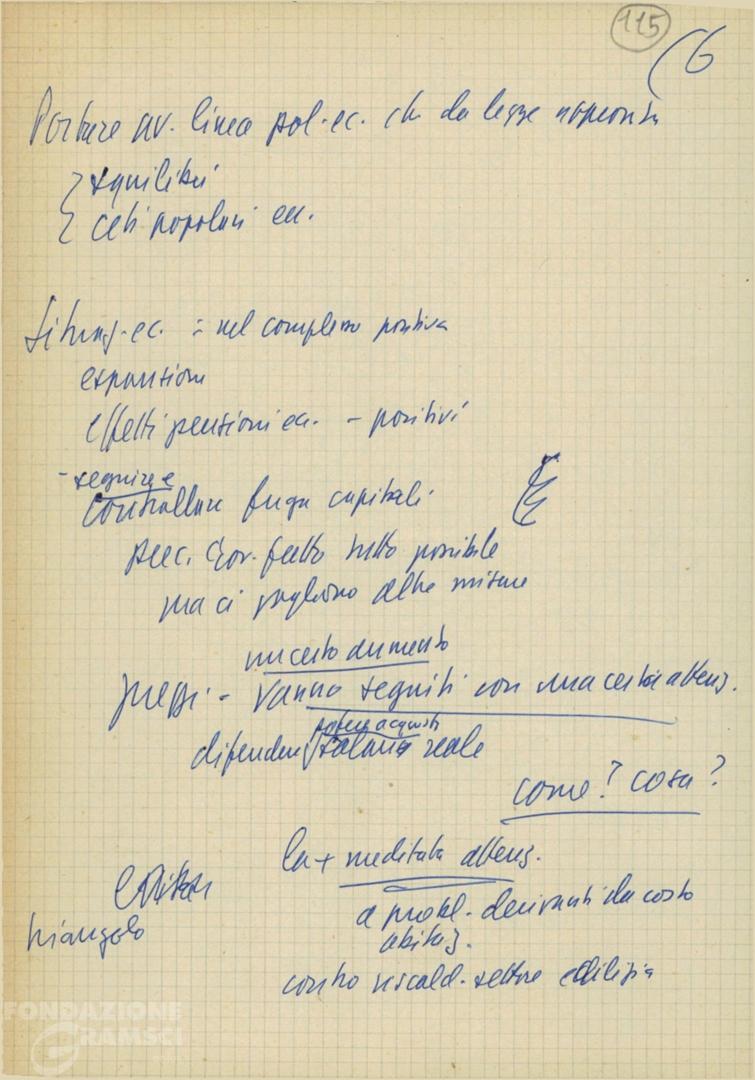 115
(6
Portare av. linea pol. ec. che da legge
equilibri
ceti popolari ecc.
Situaz. ec. : nel complesso positiva
espansione
effetti pensioni ecc. - positivi
- seguire e
controllare fuga capitali.
Gov. fatto tutto possibile
ma ci vogliono altre misure
un certo aumento
prezzi - vanno seguiti con una certa attenz.
potere acquisto
difendere salario reale
come? cosa?
la + meditata attenz.
a probl. derivanti da costo
abitaz.
contro riscald. settore edilizia
triangolo
FONDAZIONE
GRAMSCI